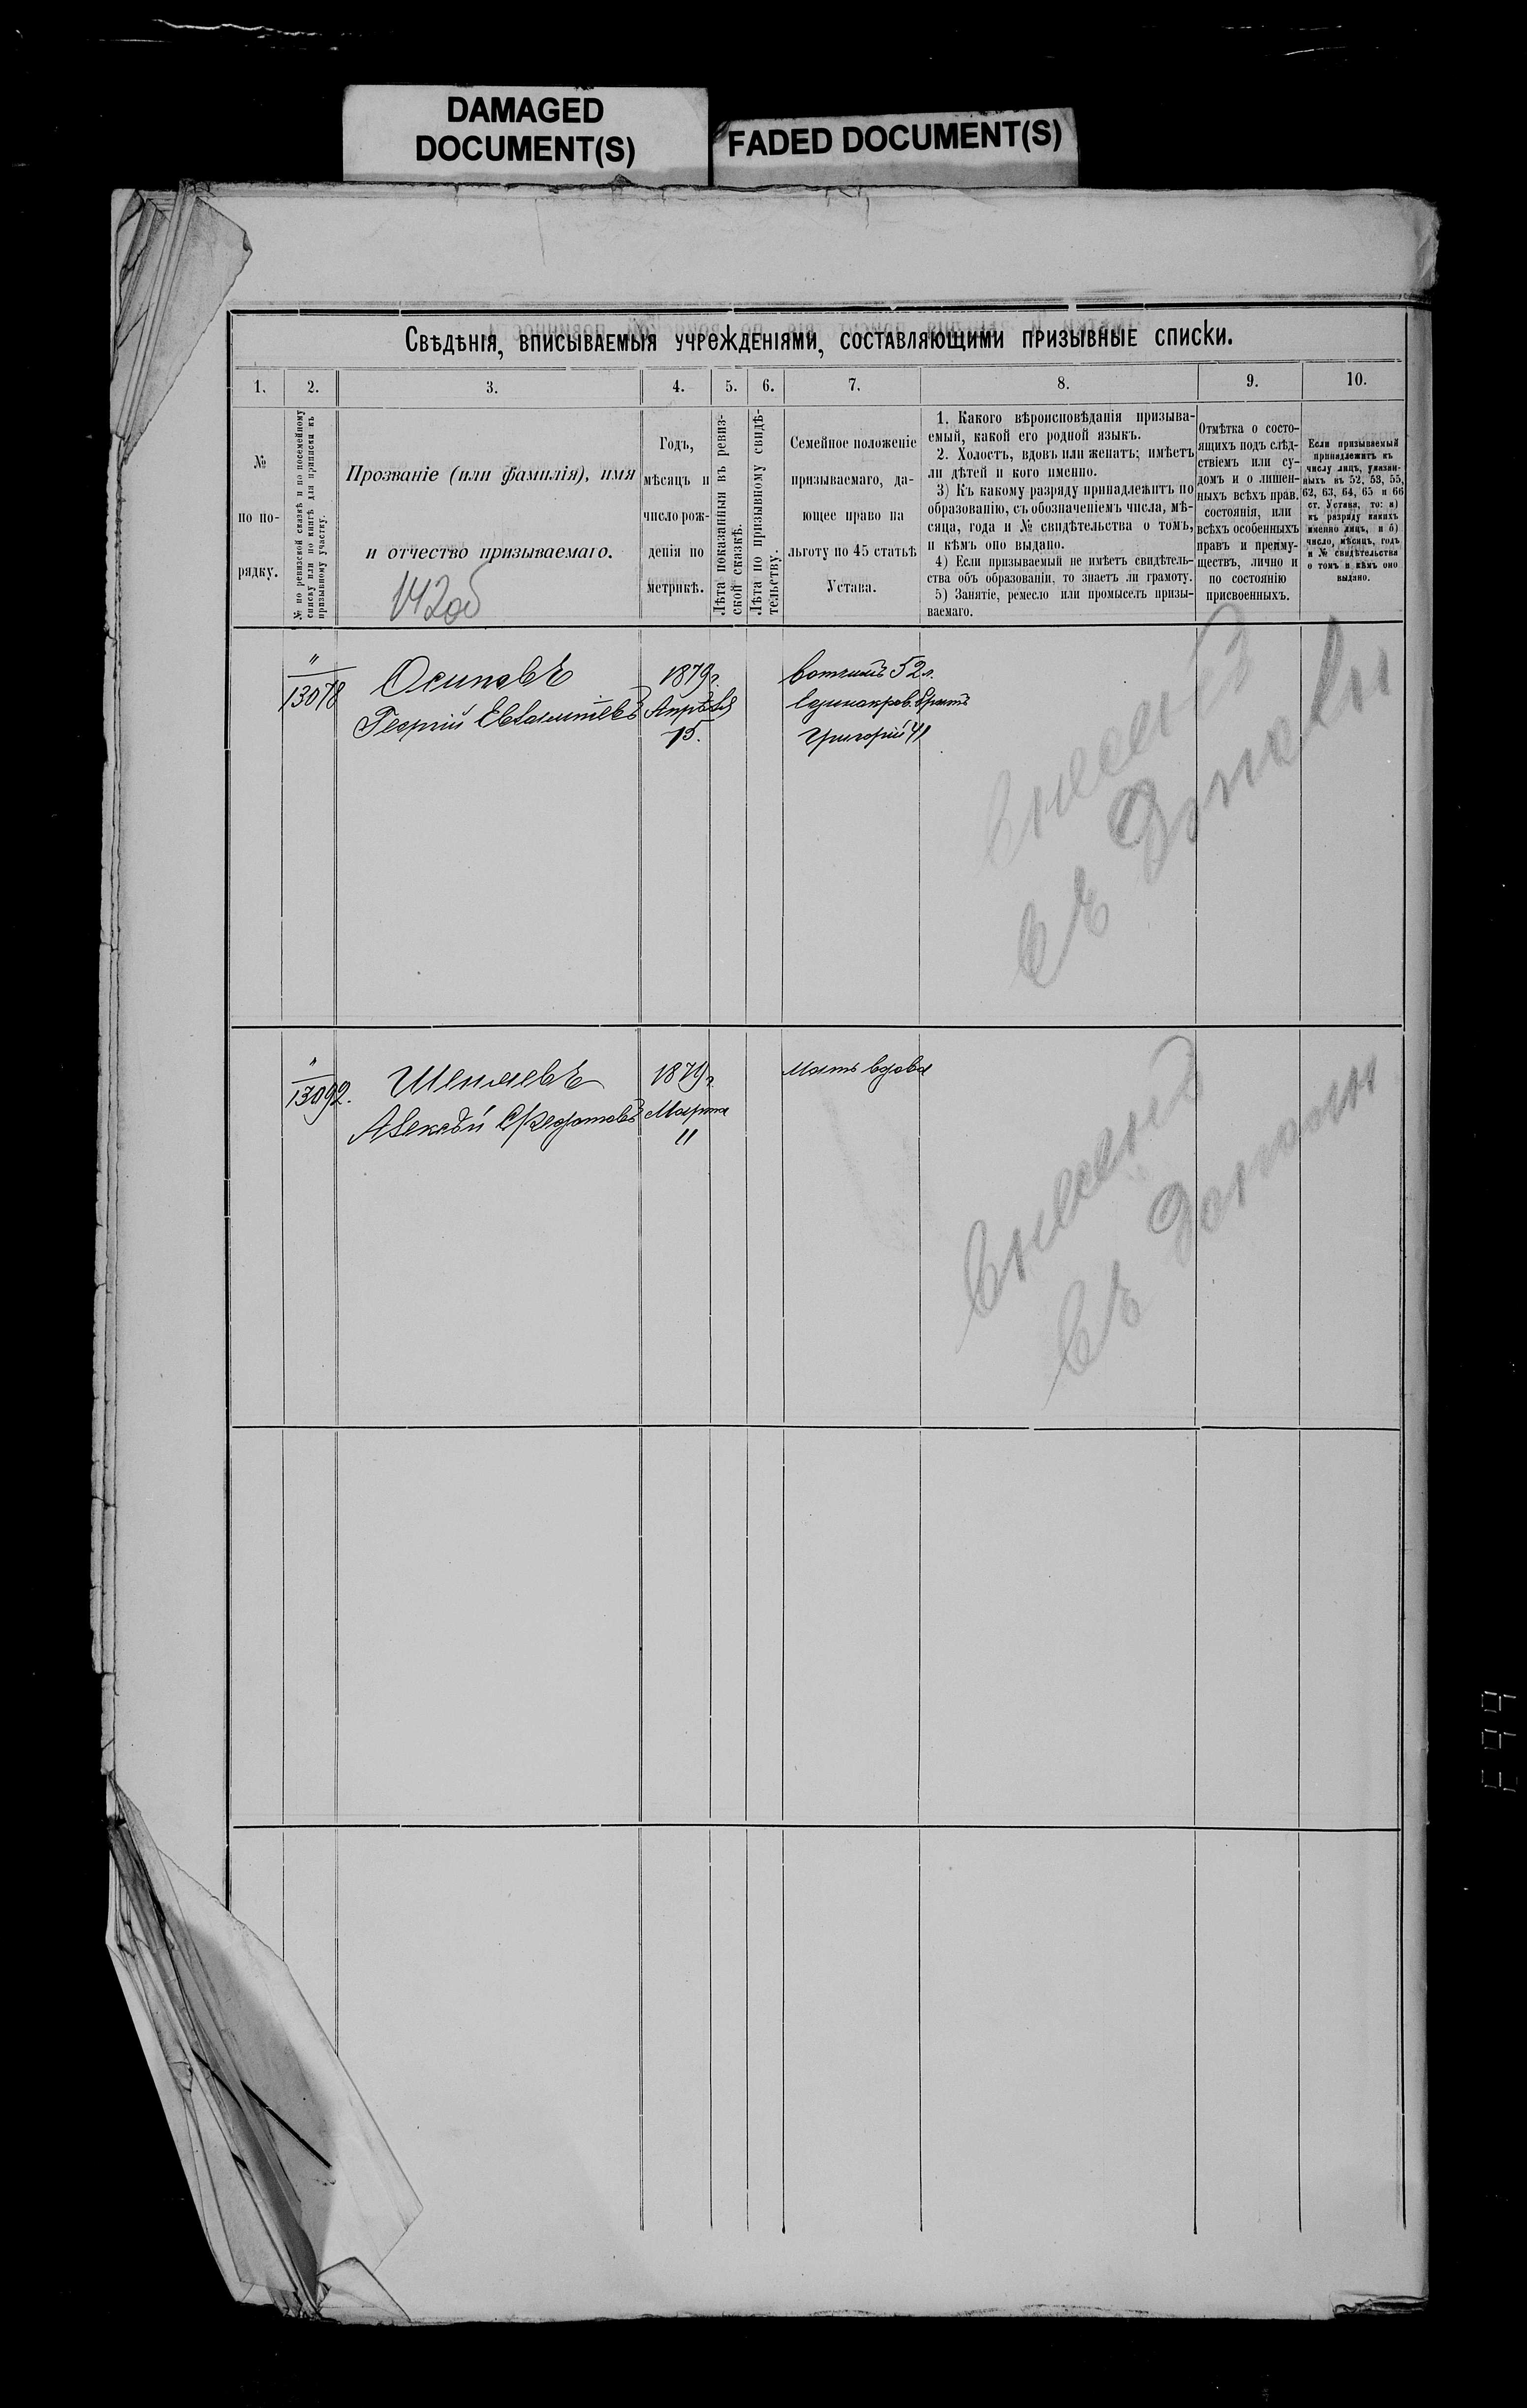 DAMAGED
DOCUMENT(S)
FADED DOCUMENT(S)
Свѣдѣнія, вписываемыя учрежденіями, составляющими призывные списки.
1.
2.
3.
4.
5.
6.
7.
8.
9.
10.
№
по по-
рядку.
№ по ревизской сказкѣ и по посемейному
списку или по книгѣ для приписки къ
призывному участку.
Прозваніе (или фамилія), имя
и отчество призываемаго.
142об
Годъ,
мѣсяцъ и
число рож-
денія по
метрикѣ.
Лѣта показанныя въ ревиз-
ской сказкѣ.
Лѣта по призывному свидѣ-
тельству.
Семейное положеніе
призываемаго, да-
ющее право на
льготу по 45 статьѣ
Устава.
1. Какого вѣроисповѣданія призыва-
емый, какой его родной языкъ.
2. Холостъ, вдовъ или женатъ; имѣетъ
ли дѣтей и кого именно.
3) Къ какому разряду принадлежитъ по
образованію, съ обозначеніемъ числа, мѣ-
сяца, года и № свидѣтельства о томъ,
и кѣмъ оно выдано.
4) Если призываемый не имѣетъ свидѣтель-
ства объ образованіи, то знаетъ ли грамоту.
5) Занятіе, ремесло или промыселъ призы-
ваемаго.
Отмѣтка о состо-
ящихъ подъ слѣд-
ствіемъ или су-
домъ и о лишен-
ныхъ всѣхъ прав.
состоянія, или
всѣхъ особенныхъ
правъ и преиму-
ществъ, лично и
по состоянію
присвоенныхъ.
Если призываемый
принадлежитъ къ
числу лицъ, указан-
ныхъ въ 52, 53, 55,
62, 63, 64, 65 и 66
ст. Устава, то: а)
къ разряду какихъ
именно лицъ, и б)
число, мѣсяцъ, годъ
и № свидѣтельства
о томъ и кѣмъ оно
выдано.
"
13078
Осиповъ
Георгій
1879г.
Апрѣля
15.
вотчимъ 52л.
Единокров. братъ
Григорій 41
Внесенъ
въ
"
13092.
Шепелевъ
Алексѣй Федотовъ
1879г.
Марта
11
Мать вдова
Внесенъ
въ